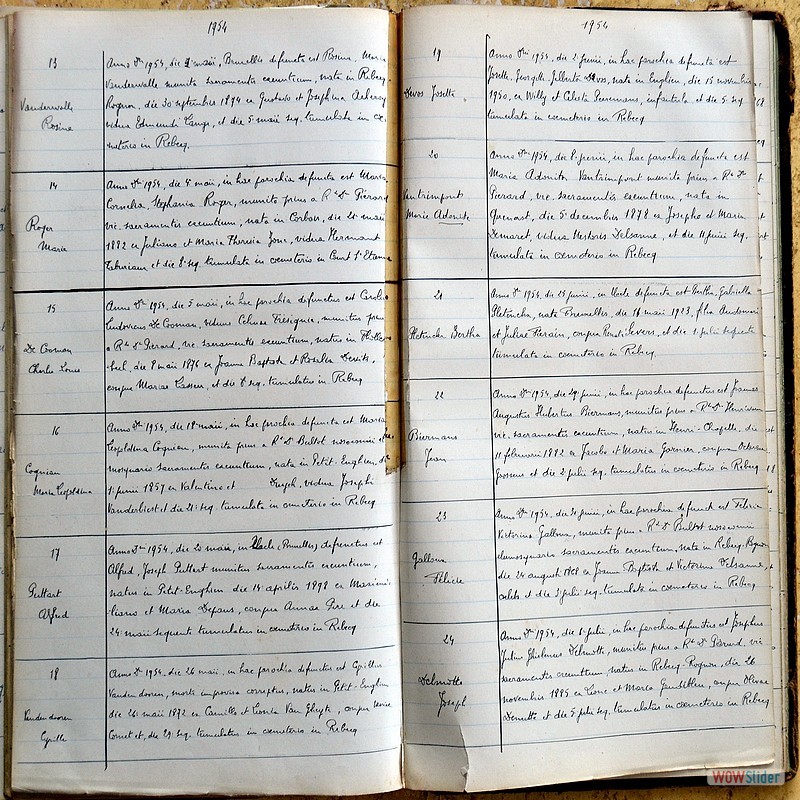 1954
13
Vanderwalle
Rosine
Anno Dni 1954, die 2 maii, Bruxellis defuncta est Rosina, Maria
Vanderwalle munita sacramentis exeuntium, nata in Rebecq
Rognon, die 30 septembris 1894 ex Gustavo et Josephina
vidua Edmundi Lange, et die 5 maii seq. tumulata in coe
meterio in Rebecq.
14
Roger
Maria
Anno Dni 1954, die 4 maii, in hac parochia defuncta est Maria
Cornelia Stephania Roger, munita prius a Rdo Do Pierard
vic. sacramentis exeuntium, nata in Corbais, die 21 maii
1882 ex Juliano et Maria Theresia vidua Hermanni
et die 8a seq. tumulata in coemeterio in Court St Etienne
15
De Cooman
Charles Louis
Anno Dni 1954, die 5 maii, in hac parochia defunctus est Carolus
Ludovicus De Cooman, viduus munitus prius
a Rdo Do Pierard, vic. sacramentis exeuntium, natus in
die 8 maii 1876 ex Joanne Baptista et Rosalia
conjux Mariae et die 8 seq. tumulatus in Rebecq
16
Coqniau
Maria Leopoldina
Anno Dni 1954, die 18 maii, in hac parochia defuncta est Maria
Leopoldina Coqniau, munita prius a Rdo Do Bultot
sacramentis exeuntium, nata in Petit-Enghien, die
1 junii 1857 ex Valentino et vidua Josephi
Vanderbiest et die 21 seq. tumulata in coemeterio in Rebecq
17
Alfred
Anno Dni 1954, die 20 maii, in Uccle (Bruxelles) defunctus est
Alfred, Joseph munitus sacramentis exeuntium,
natus in Petit-Enghien die 14 aprilis 1898 ex Maximi
liano et Maria Depaus, conjux Annae Pere et die
24 maii sequenti tumulatus in coemeterio in Rebecq
18
Vanden dooren
Cyrille
Anno Dni 1954, die 26 maii, in hac parochia defunctus est Cyrillus
Vanden dooren, morte improvisa correptus, natus in Petit-Enghien
die 26 maii 1872 ex Camillo et Leonia Van Ghyte, conjux
et, die 29 seq. tumulatus in coemeterio in Rebecq
1954
19
Devos Josette
Anno Dni 1954, die 2 junii, in hac parochia defuncta est
Josette, Georgette Gilberte Devos, nata in Enghien, die 15 novembris
1950, ex Willy et Celesta infantula et die 5 seq.
tumulata in coemeterio in Rebecq
20
Vantrimpont
Marie Adonite
Anno Dni 1954, die 8 junii, in hac parochia defuncta est
Maria Adonita Vantrimpont munita prius a Rdo Do
Pierard, vic. sacramentis exeuntium, nata in
Quenast, die 5 decembris 1878 ex Josepho et Maria
Demaret, vidua Nestoris Delsanne, et die 11 junii seq.
tumulata in coemeterio in Rebecq
21
Pletinckx Bertha
Anno Dni 1954, die 25 junii, in Uccle defuncta est Bertha, Gabriella
Pletinckx, nata Bruxelles, die 16 maii 1923, filia
et Juliae conjux et die 1 julii sequenti
tumulata in coemeterio in Rebecq.
22
Biermans
Jean
Anno Dni 1954, die 29 junii, in hac parochia defunctus est Joannes
Augustus Hubertus Biermans, munitus prius a Rdo Do
vic. sacramentis exeuntium, natus in Henri-Chapelle, die
11 februarii 1882 ex Jacobo et Maria Garnier, conjux
et die 2 julii seq. tumulatus in coemeterio in Rebecq
23
Galloux
Félicie
Anno Dni 1954, die 30 junii, in hac parochia defuncta est
Victorina Galloux, munita prius a Rdo Do Bultot
sacramentis exeuntium, nata in Rebecq-Rognon
die 24 augusti 1868 ex Joanne Baptista et Victorina Delsanne,
et die 3 julii seq. tumulata in coemeterio in Rebecq
24
Delmotte
Joseph
Anno Dni 1954, die 1 julii, in hac parochia defunctus est Josephus
Julius Ghislenus Delmotte, munitus prius a Rdo Do Pierard, vic.
sacramentis exeuntium, natus in Rebecq-Rognon, die 26
novembris 1885 ex Leone et Maria conjux
et die 5 julii seq. tumulatus in coemeterio in Rebecq
WOWSlider